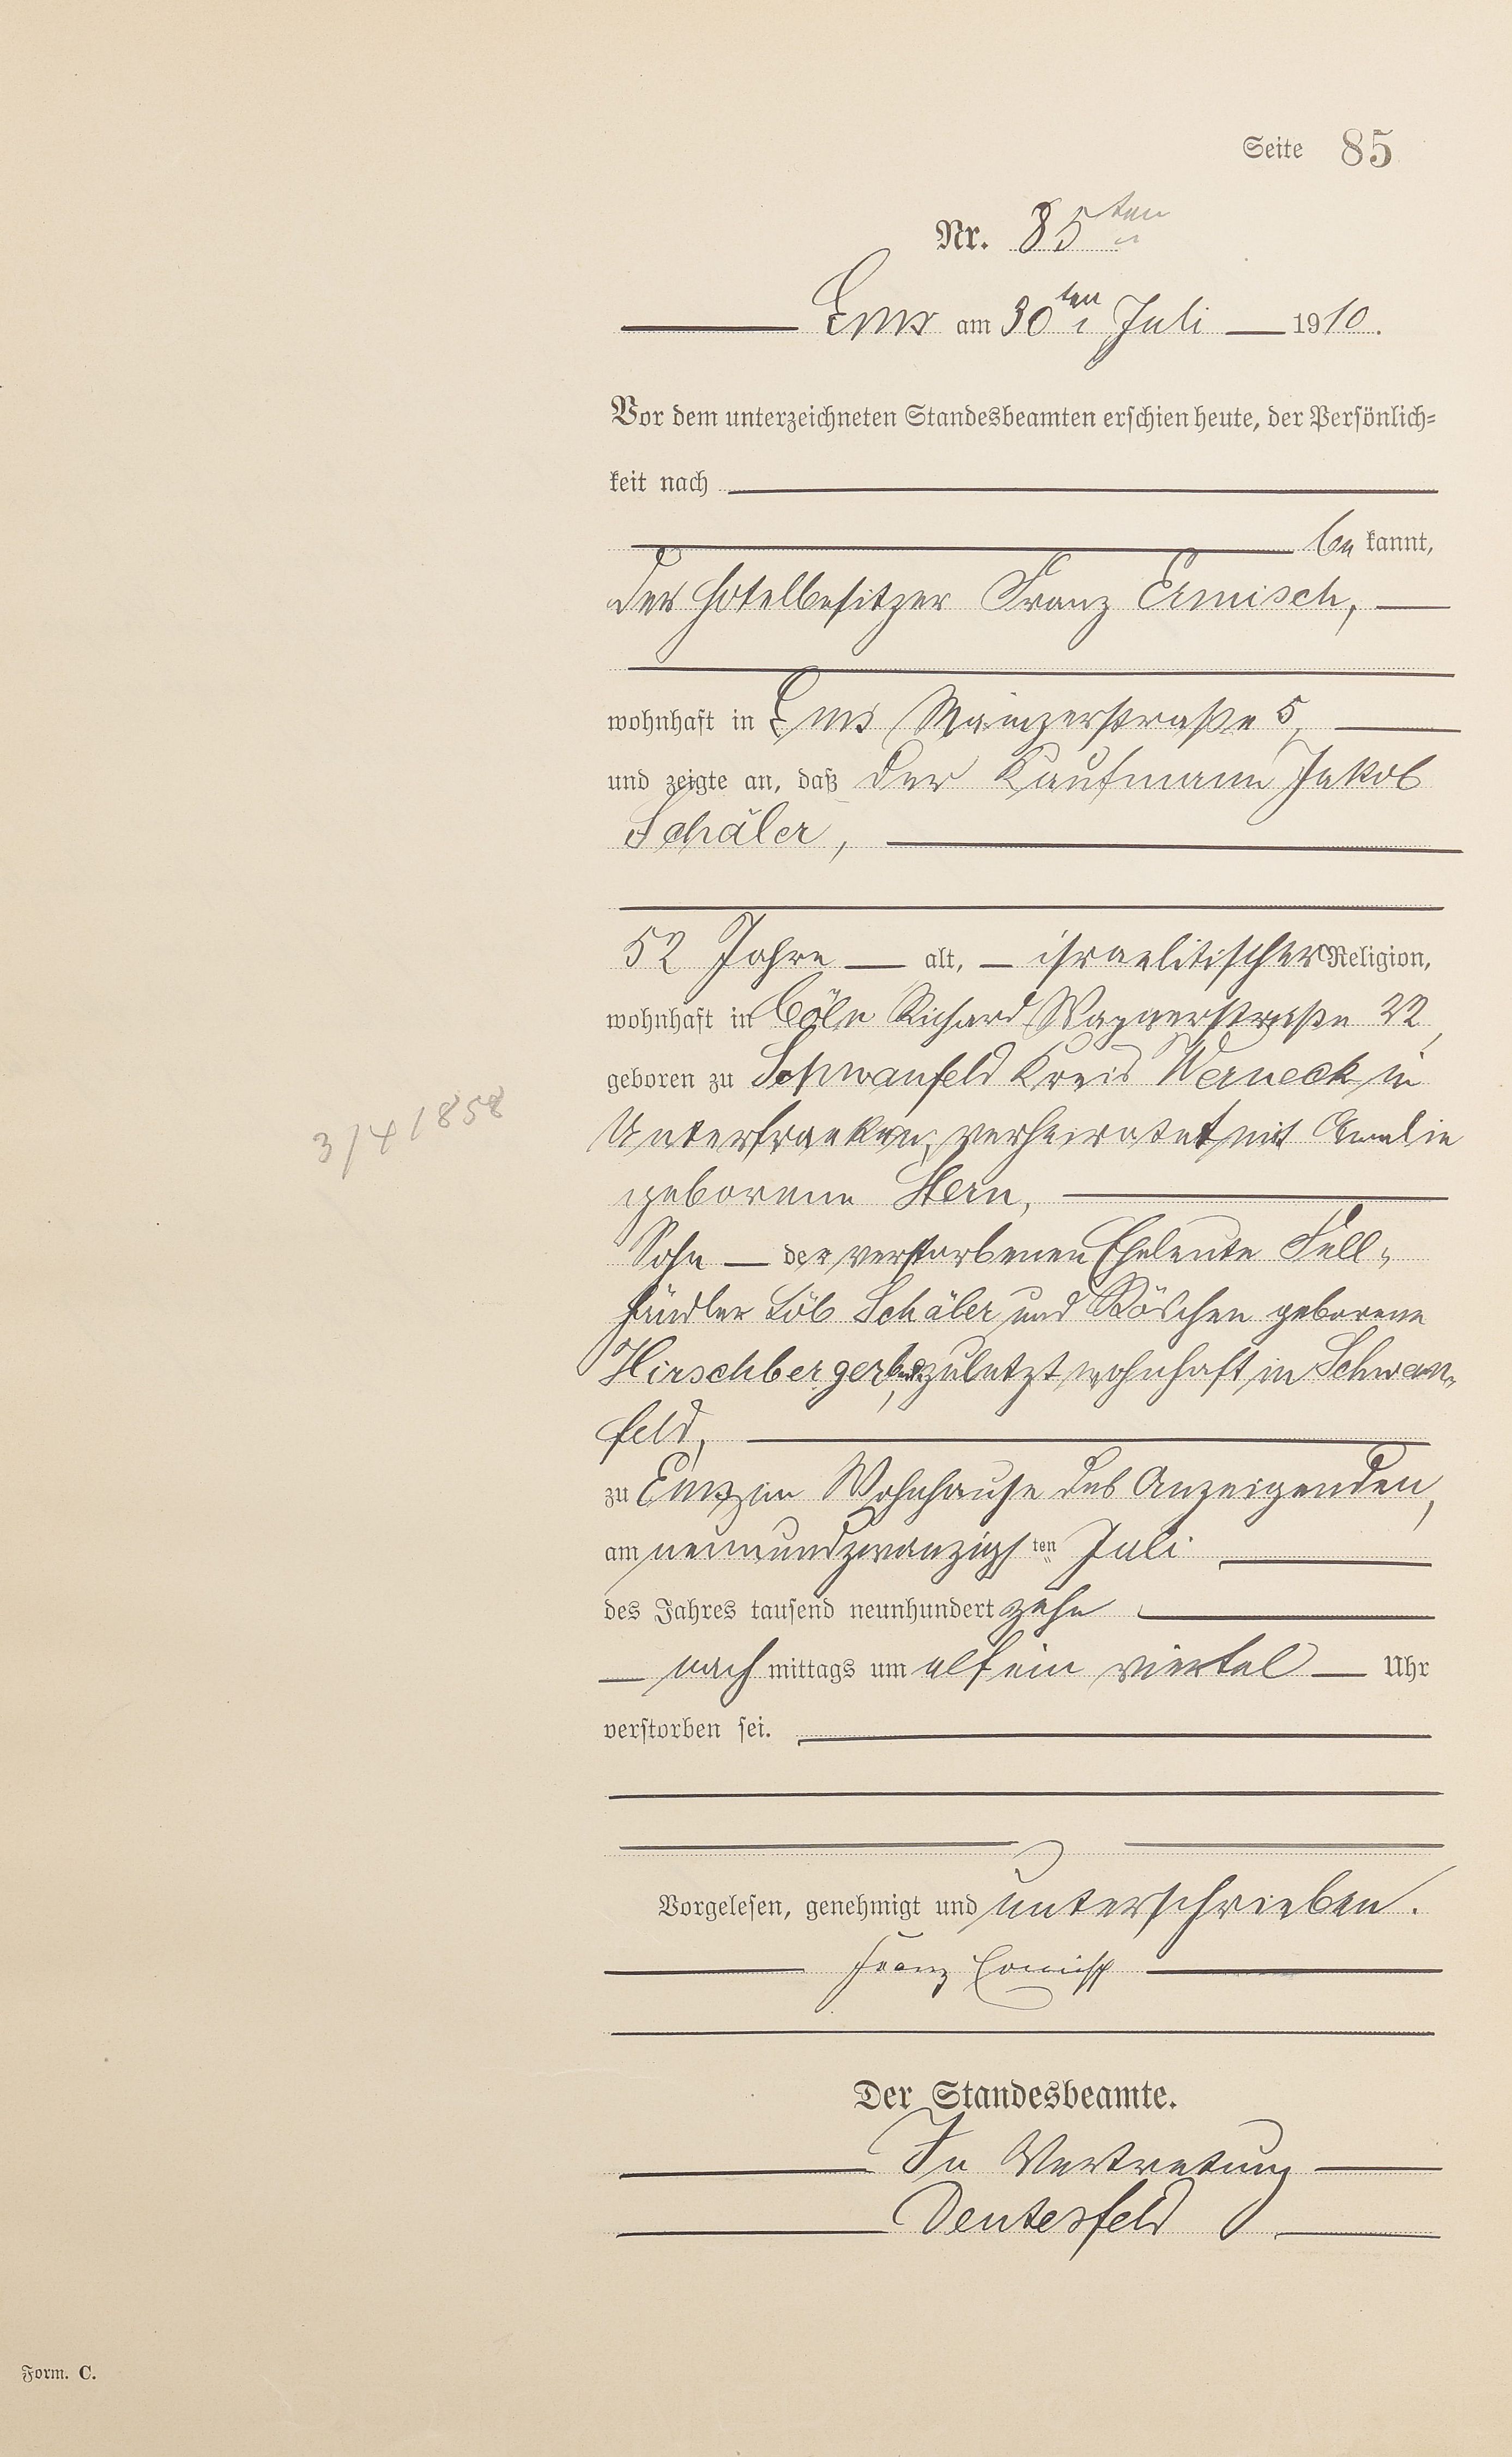 Seite 85
Nr. 85ten
Ems am 30ten Juli 1910.
Vor dem unterzeichneten Standesbeamten erschien heute, der Persönlich-
keit nach
be kannt,
der Hotelbesitzer Franz Ermisch,
wohnhaft in Ems Mainzerstraße 5,
und zeigte an, daß der Kaufmann Jakob
Schäler,
52 Jahre alt, israelitischer Religion,
wohnhaft in Cöln Richard Wagnerstraße 22,
geboren zu Schwanfeld Kreis Werneck in
Unterfranken, verheiratet mit Amalie
geborene Stern,
Sohn der verstorbenen Eheleute Fell-
händler Löb Schäler und Röschen geborene
Hirschberger, zuletzt wohnhaft in Schwan-
feld,
zu Ems im Wohnhause des Anzeigenden,
am neunundzwanzigsten Juli
des Jahres tausend neunhundert zehn
nach mittags um elf ein viertel Uhr
verstorben sei.
Vorgelesen, genehmigt und unterschrieben.
Franz Ermisch
Der Standesbeamte.
In Vertretung
Deutesfeld
3/4 1858
Form. C.